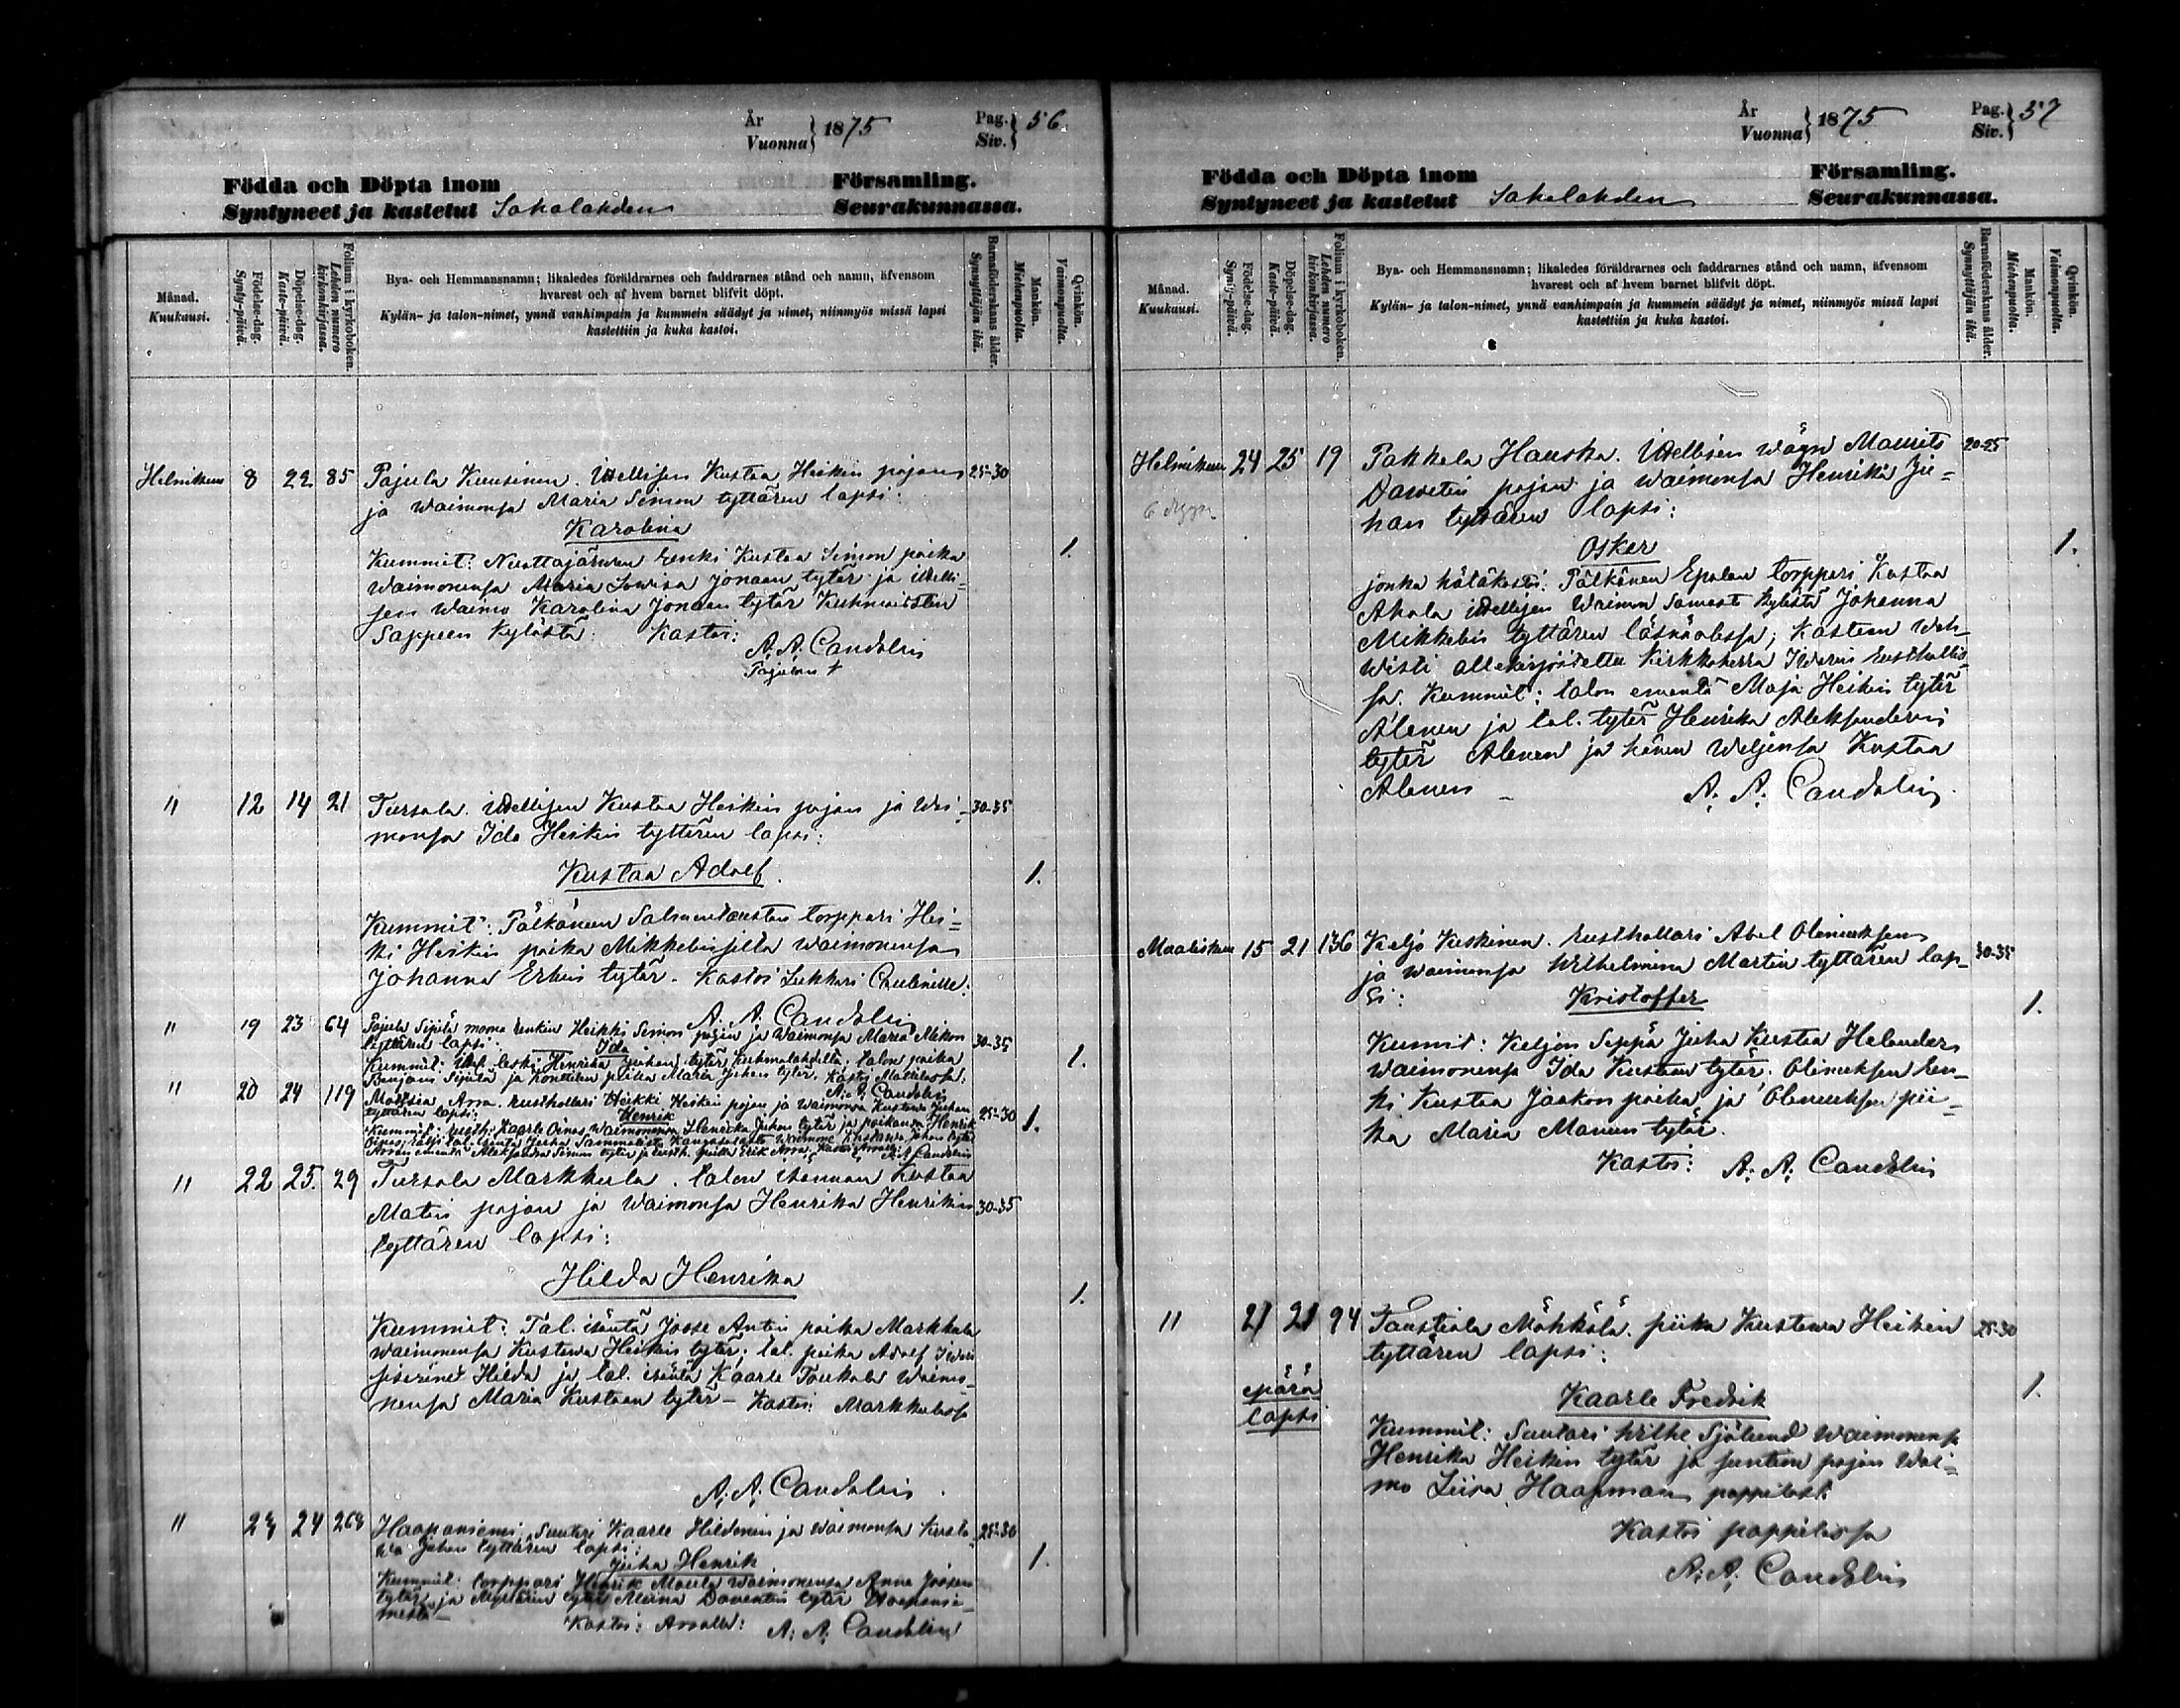 År
Vuonna } 1875
Pag.
Siv. } 56
Födda och Döpta inom Församling.
Syntyneet ja kastetut Sahalahden Seurakunnassa.
Månad.
Kuukausi.
Födelse-dag.
Synty-päivä.
Döpelse-dag.
Kaste-päivä.
Folium i kyrkoboken.
Lehden numero
kirkonkirjassa.
Bya- och Hemmansnamn; likaledes föräldrarnes och faddrarnes stånd och namn, äfvensom
hvarest och af hvem barnet blifvit döpt.
Kylän- ja talon-nimet, ynnä vanhimpain ja kummein säädyt ja nimet, niinmyös missä lapsi
kastettiin ja kuka kastoi.
Barnaföderskans ålder.
Synnyttäjän ikä.
Mankön.
Miehenpuolta.
Qvinkön.
Vaimonpuolta.
Helmikuu 8 22 85 Pajula Kuusinen. Itsellisen Kustaa Heikin pojan 25-30
ja waimonsa Maria Simon tyttären lapsi:
Karolina
Kummit: Nuottajärwen renki Kustaa Simon poika 1.
waimonensa Maria Lowisa Jonaan tytär ja itselli-
sen waimo Karolina Jonaan tytär Kuhmaisten
Sappeen kylästä: Kastoi:
A. A. Candolin
" 12 14 21 Tursola. itsellisen Kustaa Heikin pojan ja wai- 30-35
monsa Ida Heikin tyttären lapsi:
Kustaa Adolf. 1.
Kummit: Pälkäneen Salmentaustan torppari Hei-
ki Heikin poika Mikkelinsillä waimonensa
Johanna Erkin tytär. Kastoi Lukkari
A. A. Candolin
" 19 23 64 Pajula Sipilä renkin Heikki Simon pojan ja waimonsa Maria 30-35
tyttären lapsi: Ida 1.
Kummit: leski Henrika Juhan tytär talon poika
Sipilä ja poika Maria Juhan tytär. Kastoi
A. A. Candolin
" 20 24 119 Arra. rusthollari Heikki Heikin pojan ja waimonsa Kustawa Juhan 25-30
tyttären lapsi: Henrik 1.
Kummit: rusth. Kaarle Oinas waimonensa Henrika Juhan tytär ja poikansa Henrik
Oinas, isäntä Juha Kangasalasta waimo Kustawa Juhan tytär
emäntä Aleksandra Simon tytär ja rusth. poika Erik Arra. Kastoi A. A. Candolin
" 22 25. 29 Tursola Markkula. talon isännän Kustaa
Matin pojan ja waimonsa Henrika Henrikin 30-35
tyttären lapsi:
Hilda Henrika
1.
Kummit: Tal. isäntä Joose Antin poika Markkula
waimonensa Kustawa Heikin tytär; tal. poika Adolf
sisarinet Hilda ja tal. isäntä Kaarle Toukola waimo-
nensa Maria Kustaan tytär - Kastoi Markkulassa
A. A. Candolin.
" 24 268 Haapaniemi. Suutari Kaarle Hildenin ja waimonsa Kusta- 25-30
wa Juhan tyttären lapsi:
Juha Henrik 1.
Kummit: torppari Henrik waimonensa Anna
tytär ja tytär Miina Daventin tytär Haapanie-
mestä -
Kastoi: A. A. Candolin
År
Vuonna } 1875
Pag.
Siv. } 57
Födda och Döpta inom Församling.
Syntyneet ja kastetut Sahalahden Seurakunnassa.
Månad.
Kuukausi.
Födelse-dag.
Synty-päivä.
Döpelse-dag.
Kaste-päivä.
Folium i kyrkoboken.
Lehden numero
kirkonkirjassa.
Bya- och Hemmansnamn; likaledes föräldrarnes och faddrarnes stånd och namn, äfvensom
hvarest och af hvem barnet blifvit döpt.
Kylän- ja talon-nimet, ynnä vanhimpain ja kummein säädyt ja nimet, niinmyös missä lapsi
kastettiin ja kuka kastoi.
Barnaföderskans ålder.
Synnyttäjän ikä.
Mankön.
Miehenpuolta.
Qvinkön.
Vaimonpuolta.
Helmikuu 24 25 19 Pakkala Hauska. Itsellisen wäyn Maurits 20-25
Dawetin pojan ja waimonsa Henrika Ju-
han tyttären lapsi:
Osker 1.
jonka hätäkasti: Pälkäneen Epalan torppari Kustaa
Ahola itsellisen waimon samasta kylästä Johanna
Mikkelin tyttären läsnäolessa; kasteen wah-
wisti allekirjoitettu Kirkkoherra rusthollis-
sa. Kummit: talon emäntä Maja Heikin tytär
Alanen ja tal. tytär Henrika Aleksanderin
tytär Alanen ja hänen weljensä Kustaa
Alanen -
A. A. Candolin.
Maaliskuu 15 21 136 Keljo Keskinen. rusthollari Abel Olinuksen 30-35
ja waimonsa Wilhelmina Martin tyttären lap-
si: Kristoffer 1.
Kummit: Keljon Seppä Juha Kustaa Helander
waimonensa Ida Kustaan tytär. Olinuksen ren-
ki Kustaa Jaakon poika ja Olinuksen pii-
ka Maria Manun tytär.
Kastoi: A. A. Candolin
" 21 21 94 Taustiala Möhkölä. piika Kustawa Heikin 25-30
tyttären lapsi:
äpärä
lapsi
Kaarle Fredrik 1.
Kummit: Suutari Wilhe Sjölund waimonensa
Henrika Heikin tytär ja suntion pojan wai-
mo Liisa Haapman pappilasta
Kastoi pappilassa
A. A. Candolin